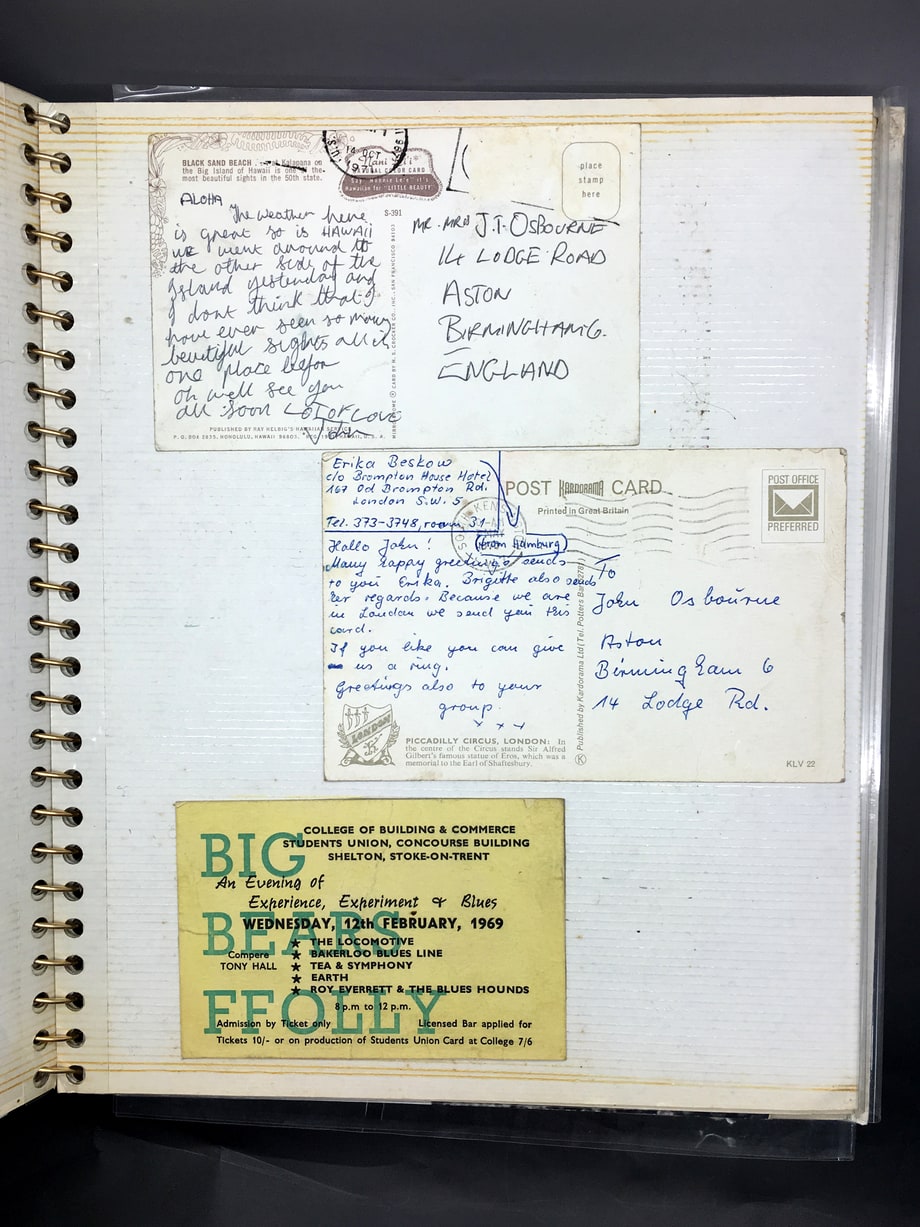 BLACK SAND BEACH . . at Kalapana on
the Big Island of Hawaii is one of the
most beautiful sights in the 50th state.
14 OCT
NATURAL COLOR CARD
Hawaiian for "LITTLE BEAUTY"
S-391
place
stamp
here
ALOHA
The weather here
is great so is HAWAII
we went around to
the other side of the
Island yesterday and
I dont think that I
have ever seen so many
beautiful sights all in
one place befor
oh well see you
all soon LOT OF LOVE
John
PUBLISHED BY RAY HELBIG'S HAWAIIAN SERVICE
P. O. BOX 2835, HONOLULU, HAWAII 96803.
MR. MRS J.T. OSBOURNE
14 LODGE ROAD
ASTON
BIRMINGHAM 6.
ENGLAND
Erika Beskow
c/o Brompton House Hotel
167 Od Brompton Rd.
London S.W. 5
Tel. 373-3748, room 31
POST KARDORAMA CARD
Printed in Great Britain
POST OFFICE
PREFERRED
Hallo John! (from Hamburg)
Many happy greetings sends
to you Erika. Brigitte also sends
her regards. Because we are
in London we send you this
card.
If you like you can give
us a ring.
Greetings also to your
group.
x x x
To
John Osbourne
Aston
Birmingham 6
14 Lodge Rd.
Published by Kardorama Ltd (Tel. Potters Bar
LONDON
PICCADILLY CIRCUS, LONDON: In
the centre of the Circus stands Sir Alfred
Gilbert's famous statue of Eros, which was a
memorial to the Earl of Shaftesbury.
K
KLV 22
COLLEGE OF BUILDING & COMMERCE
STUDENTS UNION, CONCOURSE BUILDING
SHELTON, STOKE-ON-TRENT
BIG
An Evening of
Experience, Experiment & Blues
WEDNESDAY, 12th FEBRUARY, 1969
BEARS
Compere
TONY HALL
★ THE LOCOMOTIVE
★ BAKERLOO BLUES LINE
★ TEA & SYMPHONY
★ EARTH
★ ROY EVERETT & THE BLUES HOUNDS
FFOLLY
8 p.m to 12 p.m.
Admission by Ticket only Licensed Bar applied for
Tickets 10/- or on production of Students Union Card at College 7/6